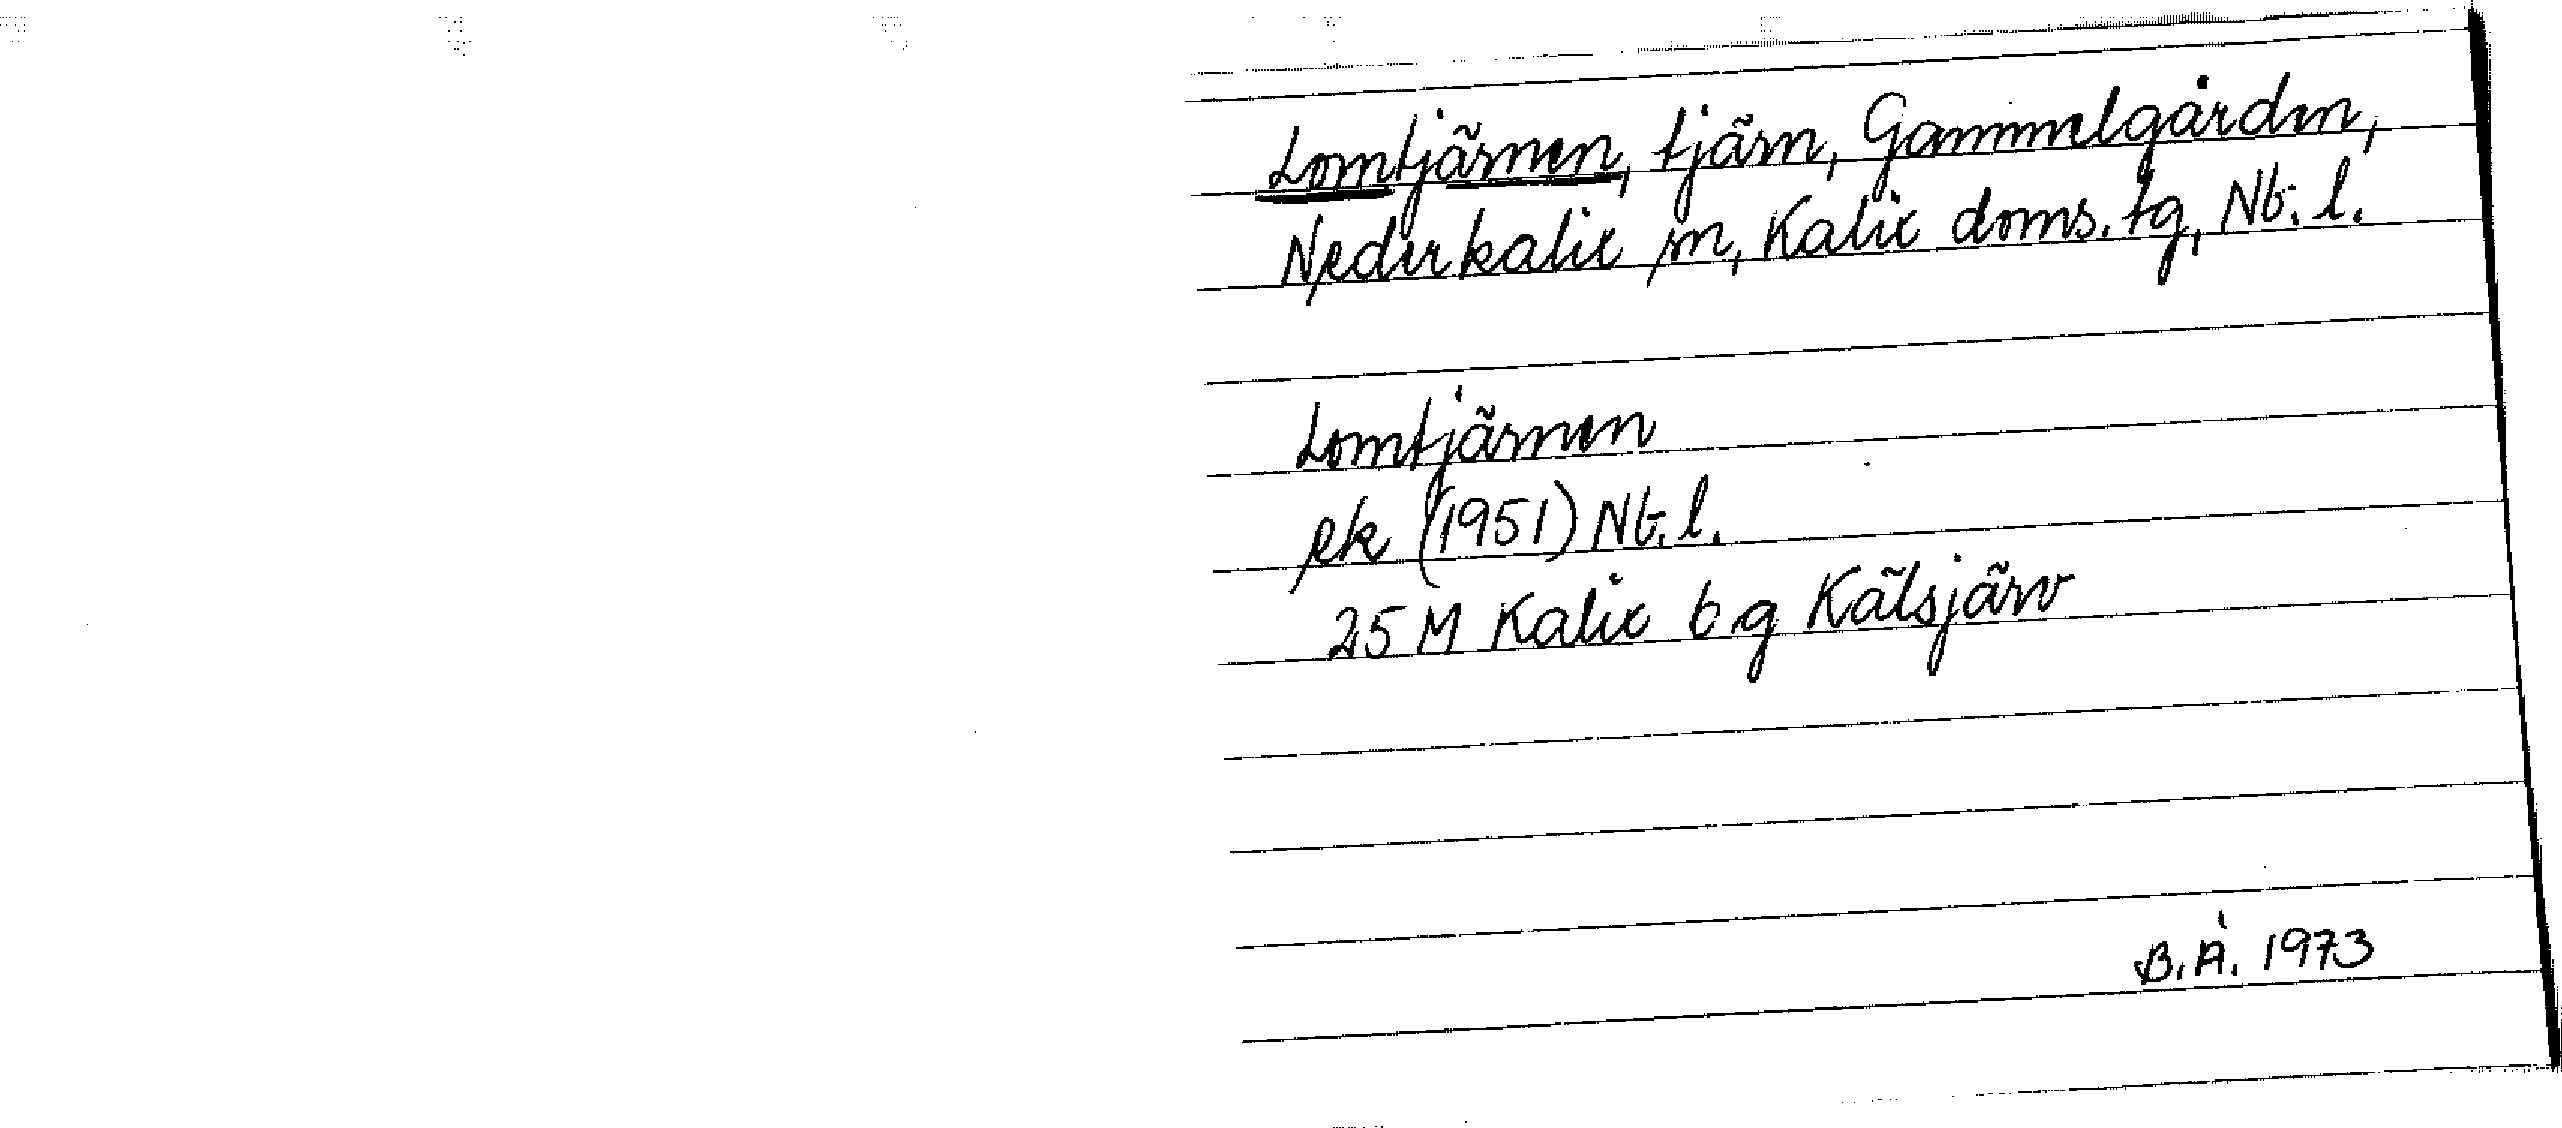 Lomtjärnen, tjärn, Gammelgården,
Nederkalix sn, Kalix doms. tg, Nb. l.
Lomtjärnen
ek (1951) Nb. l.
25 M Kalix 6 g Kälsjärv
B.Å. 1973